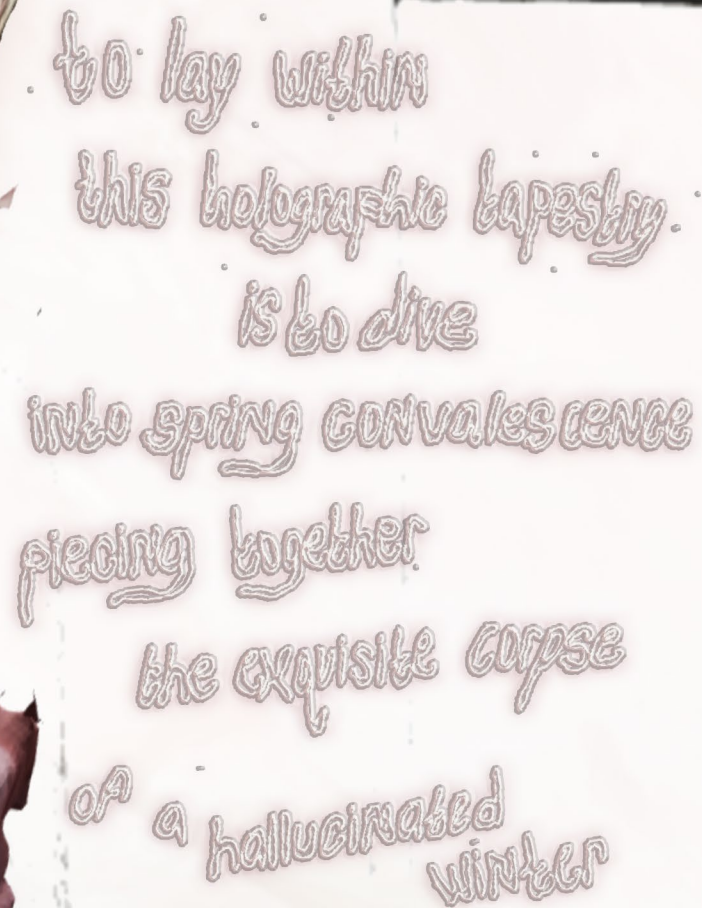 to lay within
this holographic tapestry
is to dive
into spring convalescence
piecing together
the exquisite corpse
of a hallucinated
winter